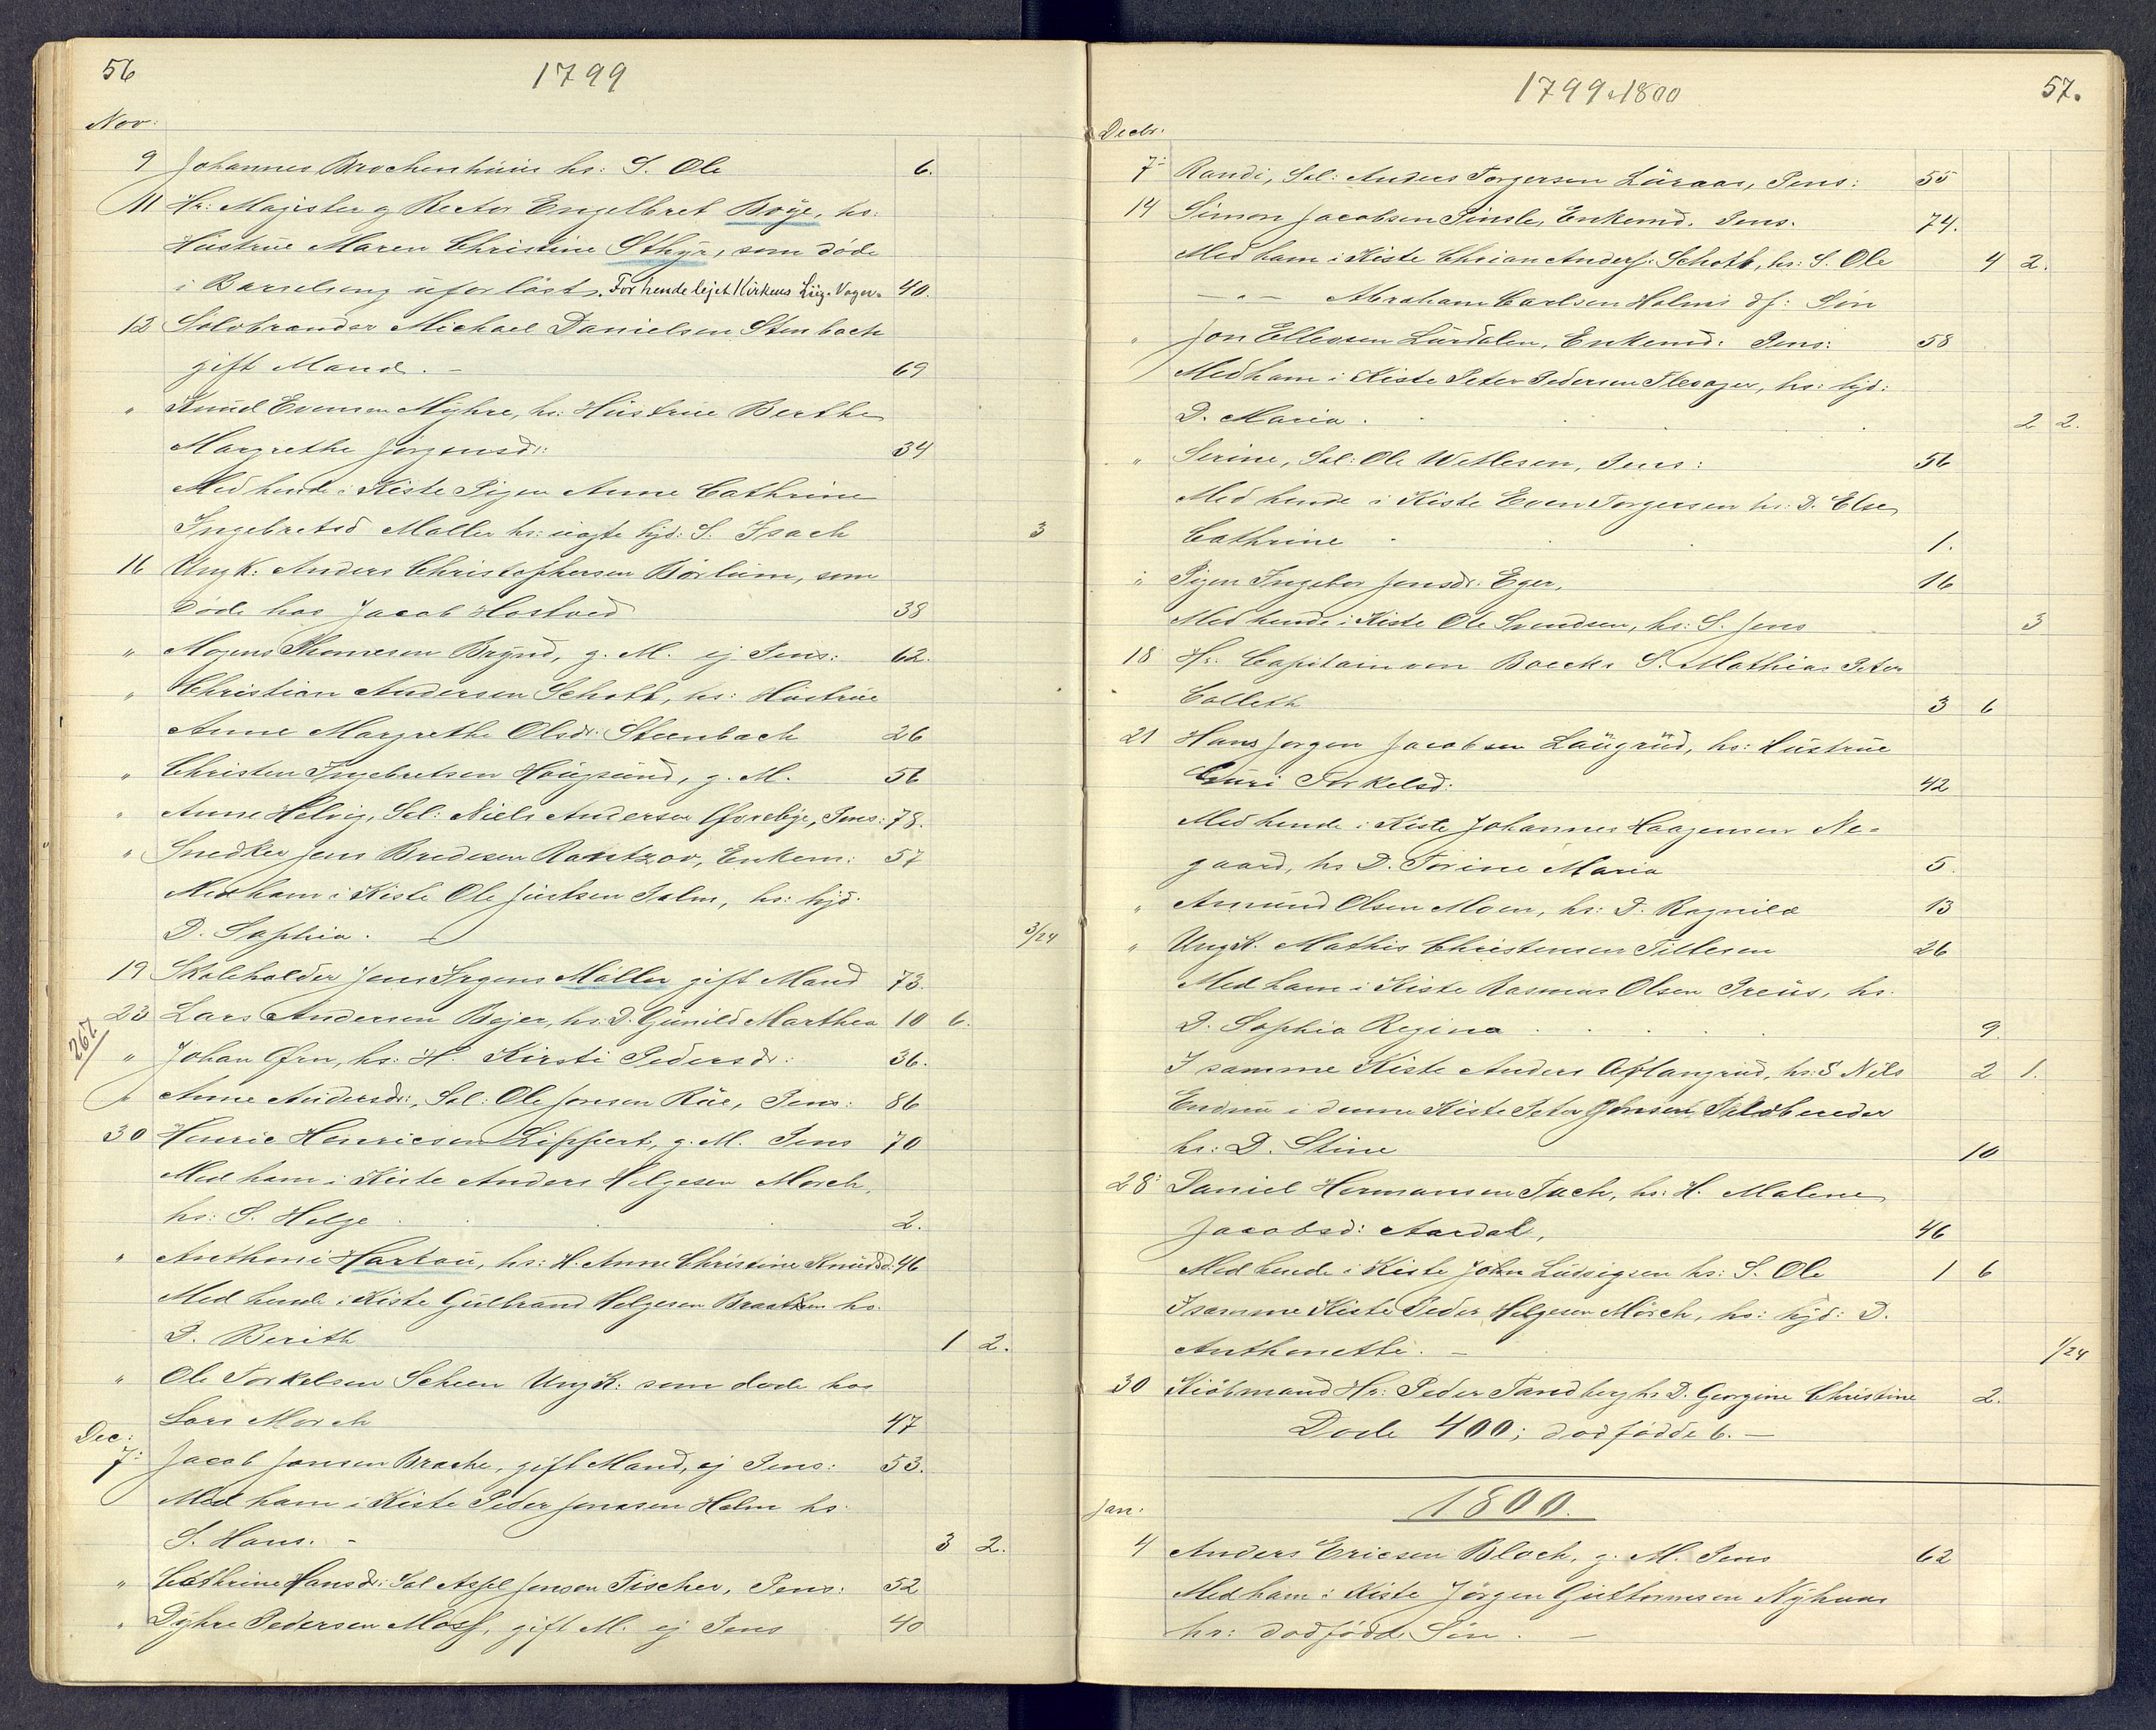 56
1799
Nov:
9 Johannes Brochenhuus hs: S. Ole 6.
11 Hr: Magister og Rector Engelbret Boye, hs:
Hustrue Maren Christine Sthyr, som döde
i Barselseng uforlöst. For hende lejet Kirkens Liig-Vogn. 40.
12 Sölvbrænder Michael Danielsen Stenbach
gift Mand. – 69
" Knud Evensen Myhre, hs: Hustrue Berthe
Margrethe Jörgensdr: 34
Med hende i Kiste Pigen Anne Cathrine
Ingebretsd Moller hs: uægte hjd: S. Isach 3
16 Ung K: Anders Christophersen Börlum, som
döde hos Jacob Hostved 38
" Mogens Thomesen Brynd, g. M. ej Pens: 62.
" Christian Andersen Schott, hs: Hustrue
Anne Margrethe Olsdr: Steenbach 26
" Christen Ingebretsen Hougsund, g. M. 56
" Anne Helvig, Sal: Niels Andersen Ofvrebye, Pens: 78.
" Snedker Jens Bredesen Rantzov, Enkem: 57
Med ham i Kiste Ole Justsen Holm, hs: hjd:
D. Sophia. – 3/24
19 Skoleholder Jens Irgens Möller gift Mand 73.
267
23 Lars Andersen Bejer, hs: D. Gunild Marthea 10 6.
" Johan Örn, hs: H. Kirsti Pedersdr: 36.
" Anne Andersdr:, Sal: Ole Jonsen Rue, Pens: 86
30 Henric Henricsen Lippert, g. M. Pens 70
Med ham i Kiste Anders Helgesen Morch,
hs: S. Helge 2.
" Anthoni Hartou, hs: H. Anne Christine Knudsd: 46
Med hende i Kiste Gulbrand Helgesen Braathen hs:
D. Berith 1 2.
" Ole Torkelsen Scheen Ung K: som döde hos
Lars Morch 47
Dec:
7: Jacob Jansen Brache, gift Mand, ej Pens: 53.
Med ham i Kiste Peder Jonasen Holm hs:
S. Hans. – 3 2.
" Cathrine Hansdr: Sal Assel Jensen Fischer, Pens: 52
" Dyhre Pedersen Moss, gift M. ej Pens 40
1799 & 1800
57.
Decbr.
7: Randi, Sal: Anders Torgersen Luraas, Pens: 55
14 Simon Jacobsen Pinsle, Enkemd. Pens. 74.
Med ham i Kiste Chrian Anders: Schott, hs: S. Ole 4 2.
– " – Abraham Carlsen Holms df: Sön
" Jon Ellevsen Lurdalen, Enkemd: Pens: 58
Med ham i Kiste Peter Pedersen Flesager, hs: hjd:
D. Maria. 2 2.
" Serine, Sal: Ole Wetlesen, Pens: 56
Med hende i Kiste Even Torgersen hs: D. Else
Cathrine 1.
" Pigen Ingebor Jensdr: Eger, 16
Med hende i Kiste Ole Svendsen, hs: S. Jens 3
18 Hr: Capitain von Boecks S. Mathias Peter
Colleth 3 6
21 Hans Jorgen Jacobsen Laugrud, hs: Hustrue
Guri Torkelsd: 42
Med hende i Kiste Johannes Haagensen Ne=
gaard, hs D. Torine Maria 5.
" Amund Olsen Moen, hs: D. Ragnild 13
" Ung K. Mathis Christensen Tillesen 26
Med ham i Kiste Rasmus Olsen Preus, hs:
D. Sophia Regina 9.
I samme Kiste Anders Aslangrud, hs: S Nils 2 1.
Endnu i denne Kiste Peter Jensen
hs: D. Stine 10
28: Daniel Hermansen Tach, hs: H. Malene
Jacobsd: Aardal, 46
Med hende i Kiste John Ludvigsen hs: S. Ole 1 6
I samme Kiste Peder Helgesen Mörch, hs: hjd: D.
Anthonette. – 1/24
30 Kiöbmand Hr: Peder Tandberg hs D. Georgine Christine 2.
Dode 400; dodfödde 6. –
1800.
Jan:
4 Anders Ericsen Bloch, g. M. Pens 62
Med ham i Kiste Jörgen Guttormsen Nyhuus
hs: dodfödde Sön. –